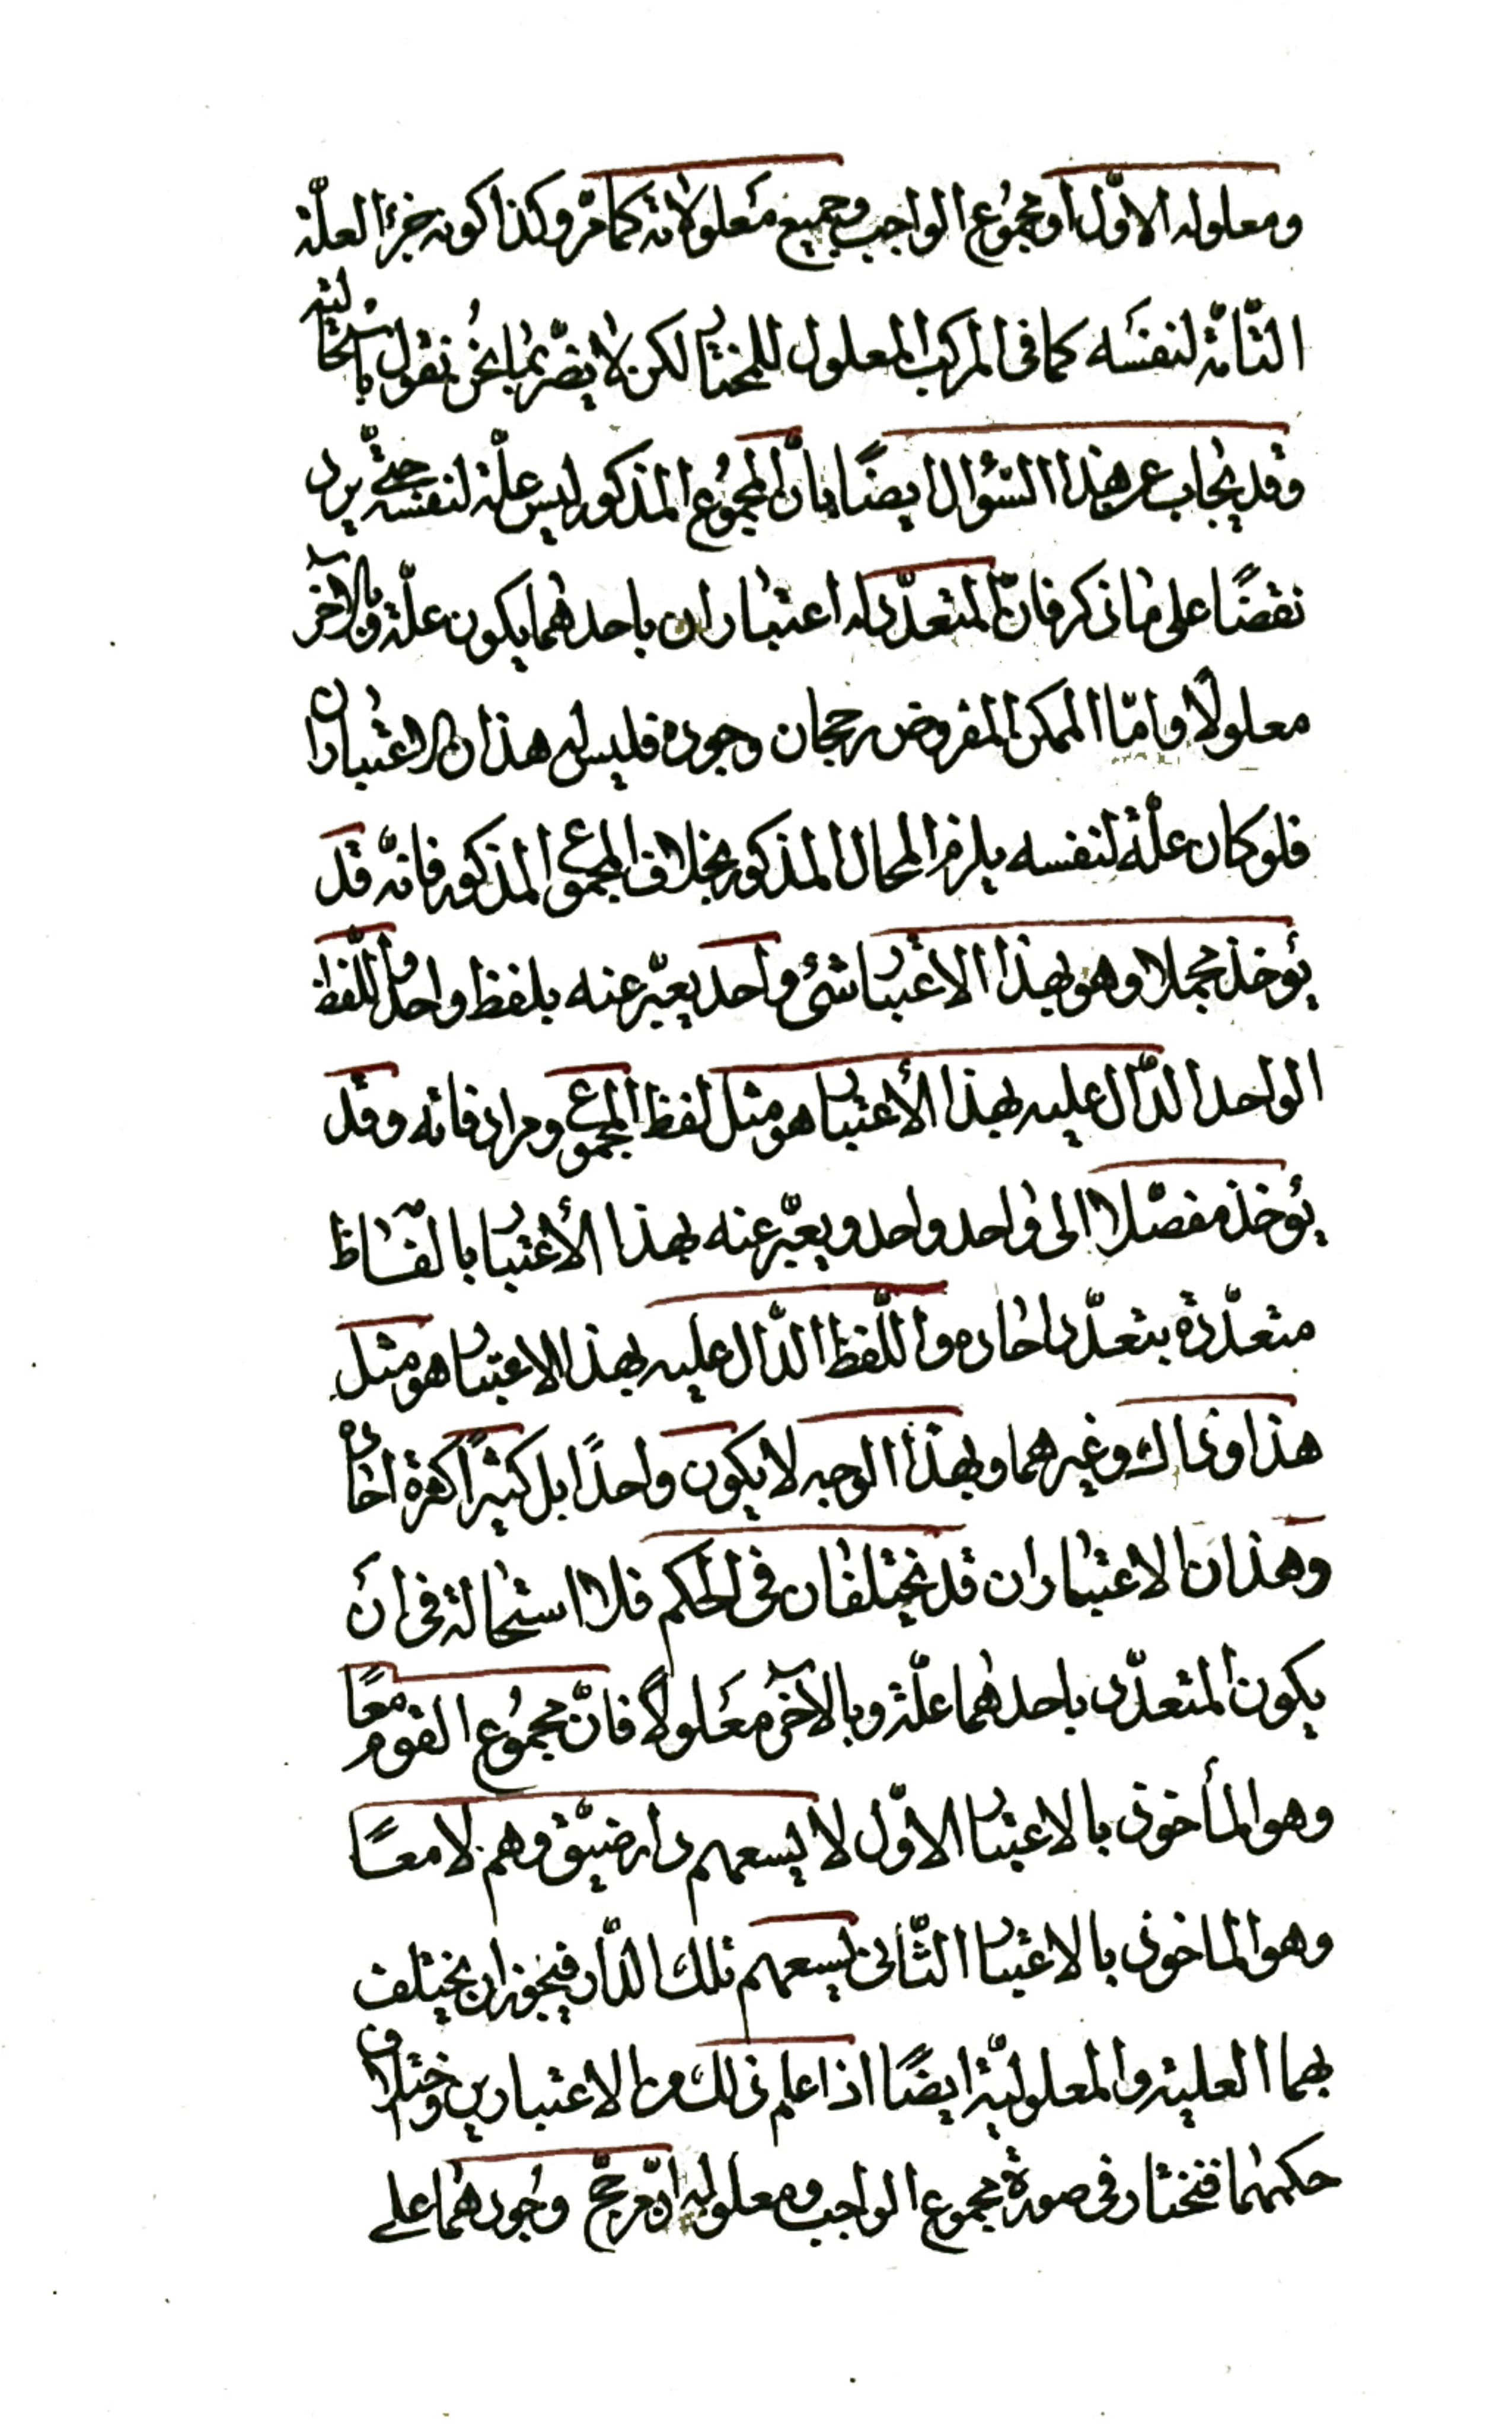 ومعلوله الاوّل او مجموع الواجب وجميع معلولاته كما مرّ وكذا كونه جزء العلّة
التّامّة لنفسه كما فى المركب المعلول للمختار لكن لا يضّر بما نحن نقول باستحالته
وقد يجاب عن هذا السّؤال ايضًا بأنّ المجموع المذكور ليس علّة لنفسه حتّى يرد
نقضًا على ما ذكر فانّ المتعدّد له اعتباران باحدهما يكون علّة وبالآخر
معلولًا وامّا الممكن المفروض رجحان وجوده فليس له هذان الاعتباران
فلو كان علّة لنفسه يلزم المحال المذكور بخلاف المجموع المذكور فانّه قد
يؤخذ مجملا وهو بهذا الاعتبار شئ واحد يعبّر عنه بلفظ واحد واللّفظ
الواحد الدّال عليه بهذا الأعتبار هو مثل لفظ المجموع ومرادفاته وقد
يؤخذ مفصّلا الى واحد واحد ويعبّر عنه بهذا الأعتبار بالفاظ
متعدّدة بتعدّد احاده واللّفظ الدّال عليه بهذا الاعتبار هو مثل
هذا وذاك وغيرهما وبهذا الوجه لا يكون واحدًا بل كثيرًا كثرة احاده
وهذان الاعتباران قد يختلفان فى الحكم فلا استحالة فى أن
يكون المتعدّد باحدهما علّة وبالآخر معلولًا فانّ مجموع القوم معًا
وهو المأخوذ بالاعتبار الاوّل لا يسعهم دار ضيّق وهم لا معًا
وهو الماخوذ بالاعتبار الثّانى يسعهم تلك الدّار فيجوز ان يختلف
بهما العلية والمعلوليّة ايضًا اذا علم ذلك من الاعتبارين واختلاف
حكمهما فنختار فى صورة مجموع الواجب ومعلوله انّ مرجّح وجودهما على